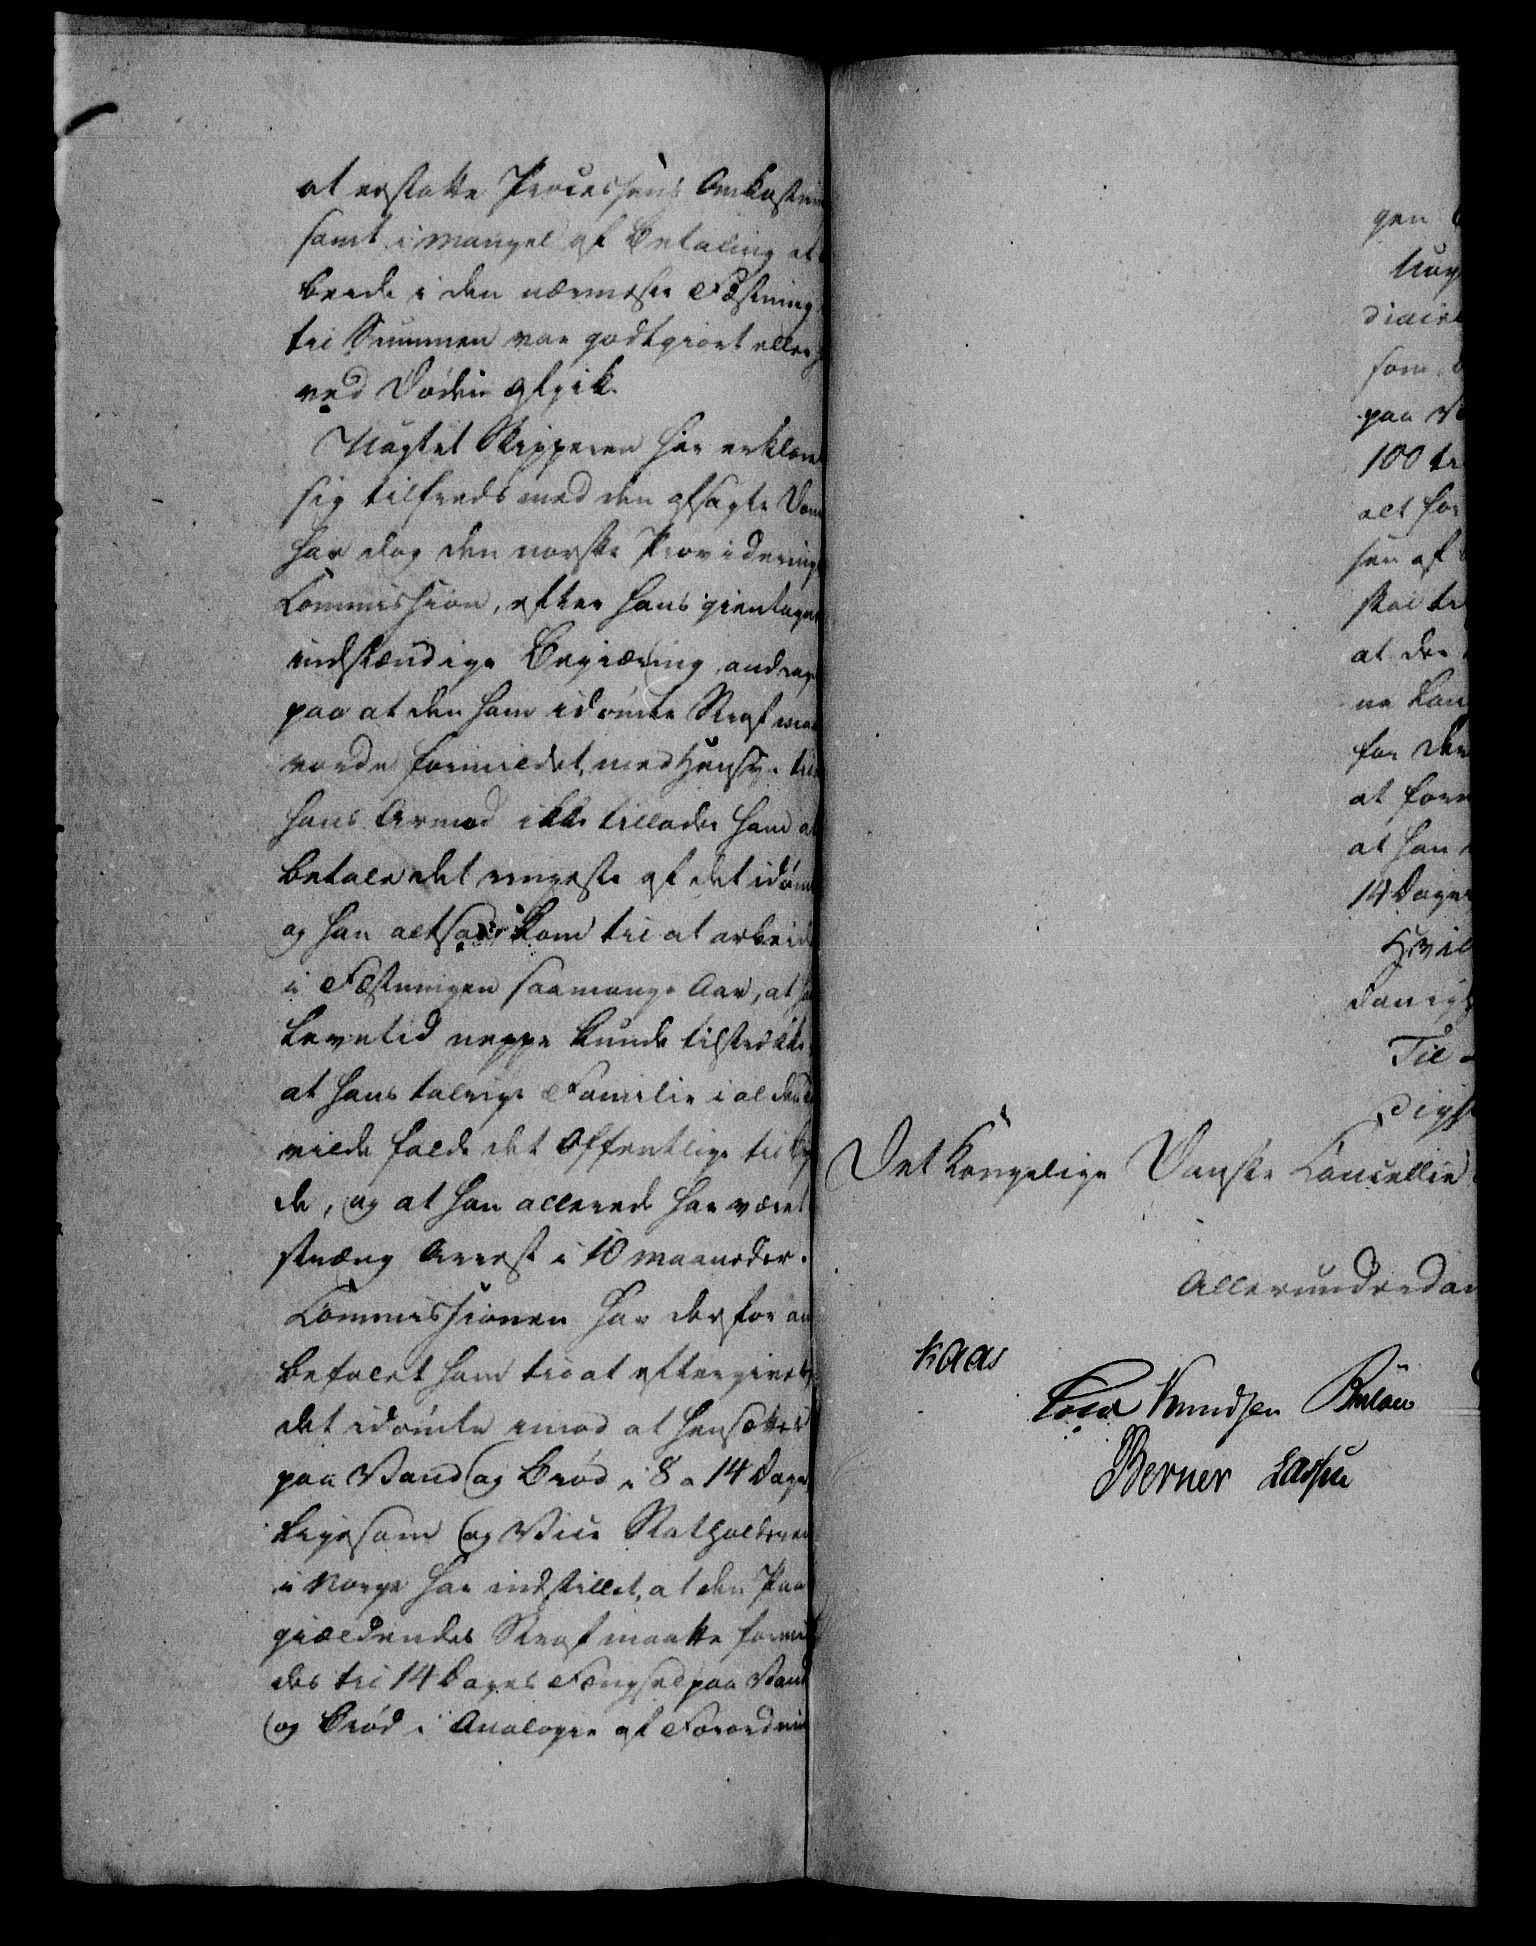 at erstatte Processens Omkostnin
samt i Mangel af Betaling at
beide i den nærmeste Fæstning
til Summen var godtgiort eller
ved Døden afgik.
Uagtet Skipperen har erklæret
sig tilfreds med den afsagte Dom
har dog den norske Provideringe
Commission, efter hans gientagne
indstændige Begiæring andrag
paa at den ham idømte Straf maa
vorde formildet, med Hensyn til
hans Armod ikke tillader ham at
betale det ringeste af det idømte
og han altsaa kom til at arbeide
i Fæstningen saamange Aar, at ha
Levetid neppe kunde tilstrække
at hans talrige Familie i al den
vilde falde det Offentlige til By
de, og at han allerede har været
stræng Arrest i 10 Maaneder.
Commissionen har derfor an
befalet ham til at eftergives
det idømte imod at hensættes
paa Vand og Brød i 8 a 14 Dage
ligesom og Vice Statholderen
i Norge har indstillet, at den Paa
giældendes Straf maatte formil
des til 14 Dages Fængsel paa Vand
og Brød i Analogie af Forordnin
gen
Uag
diciel
som
paa V
100 
alt for
sen af
skal til
at den
ne kan
for den
at form
at han
14 Dages
Hvil
danigs
Til
digst
Det Kongelige Danske Cancellie
Allerunderdan
Kaas
Cold Knudsen Bülow
Berner Lassen